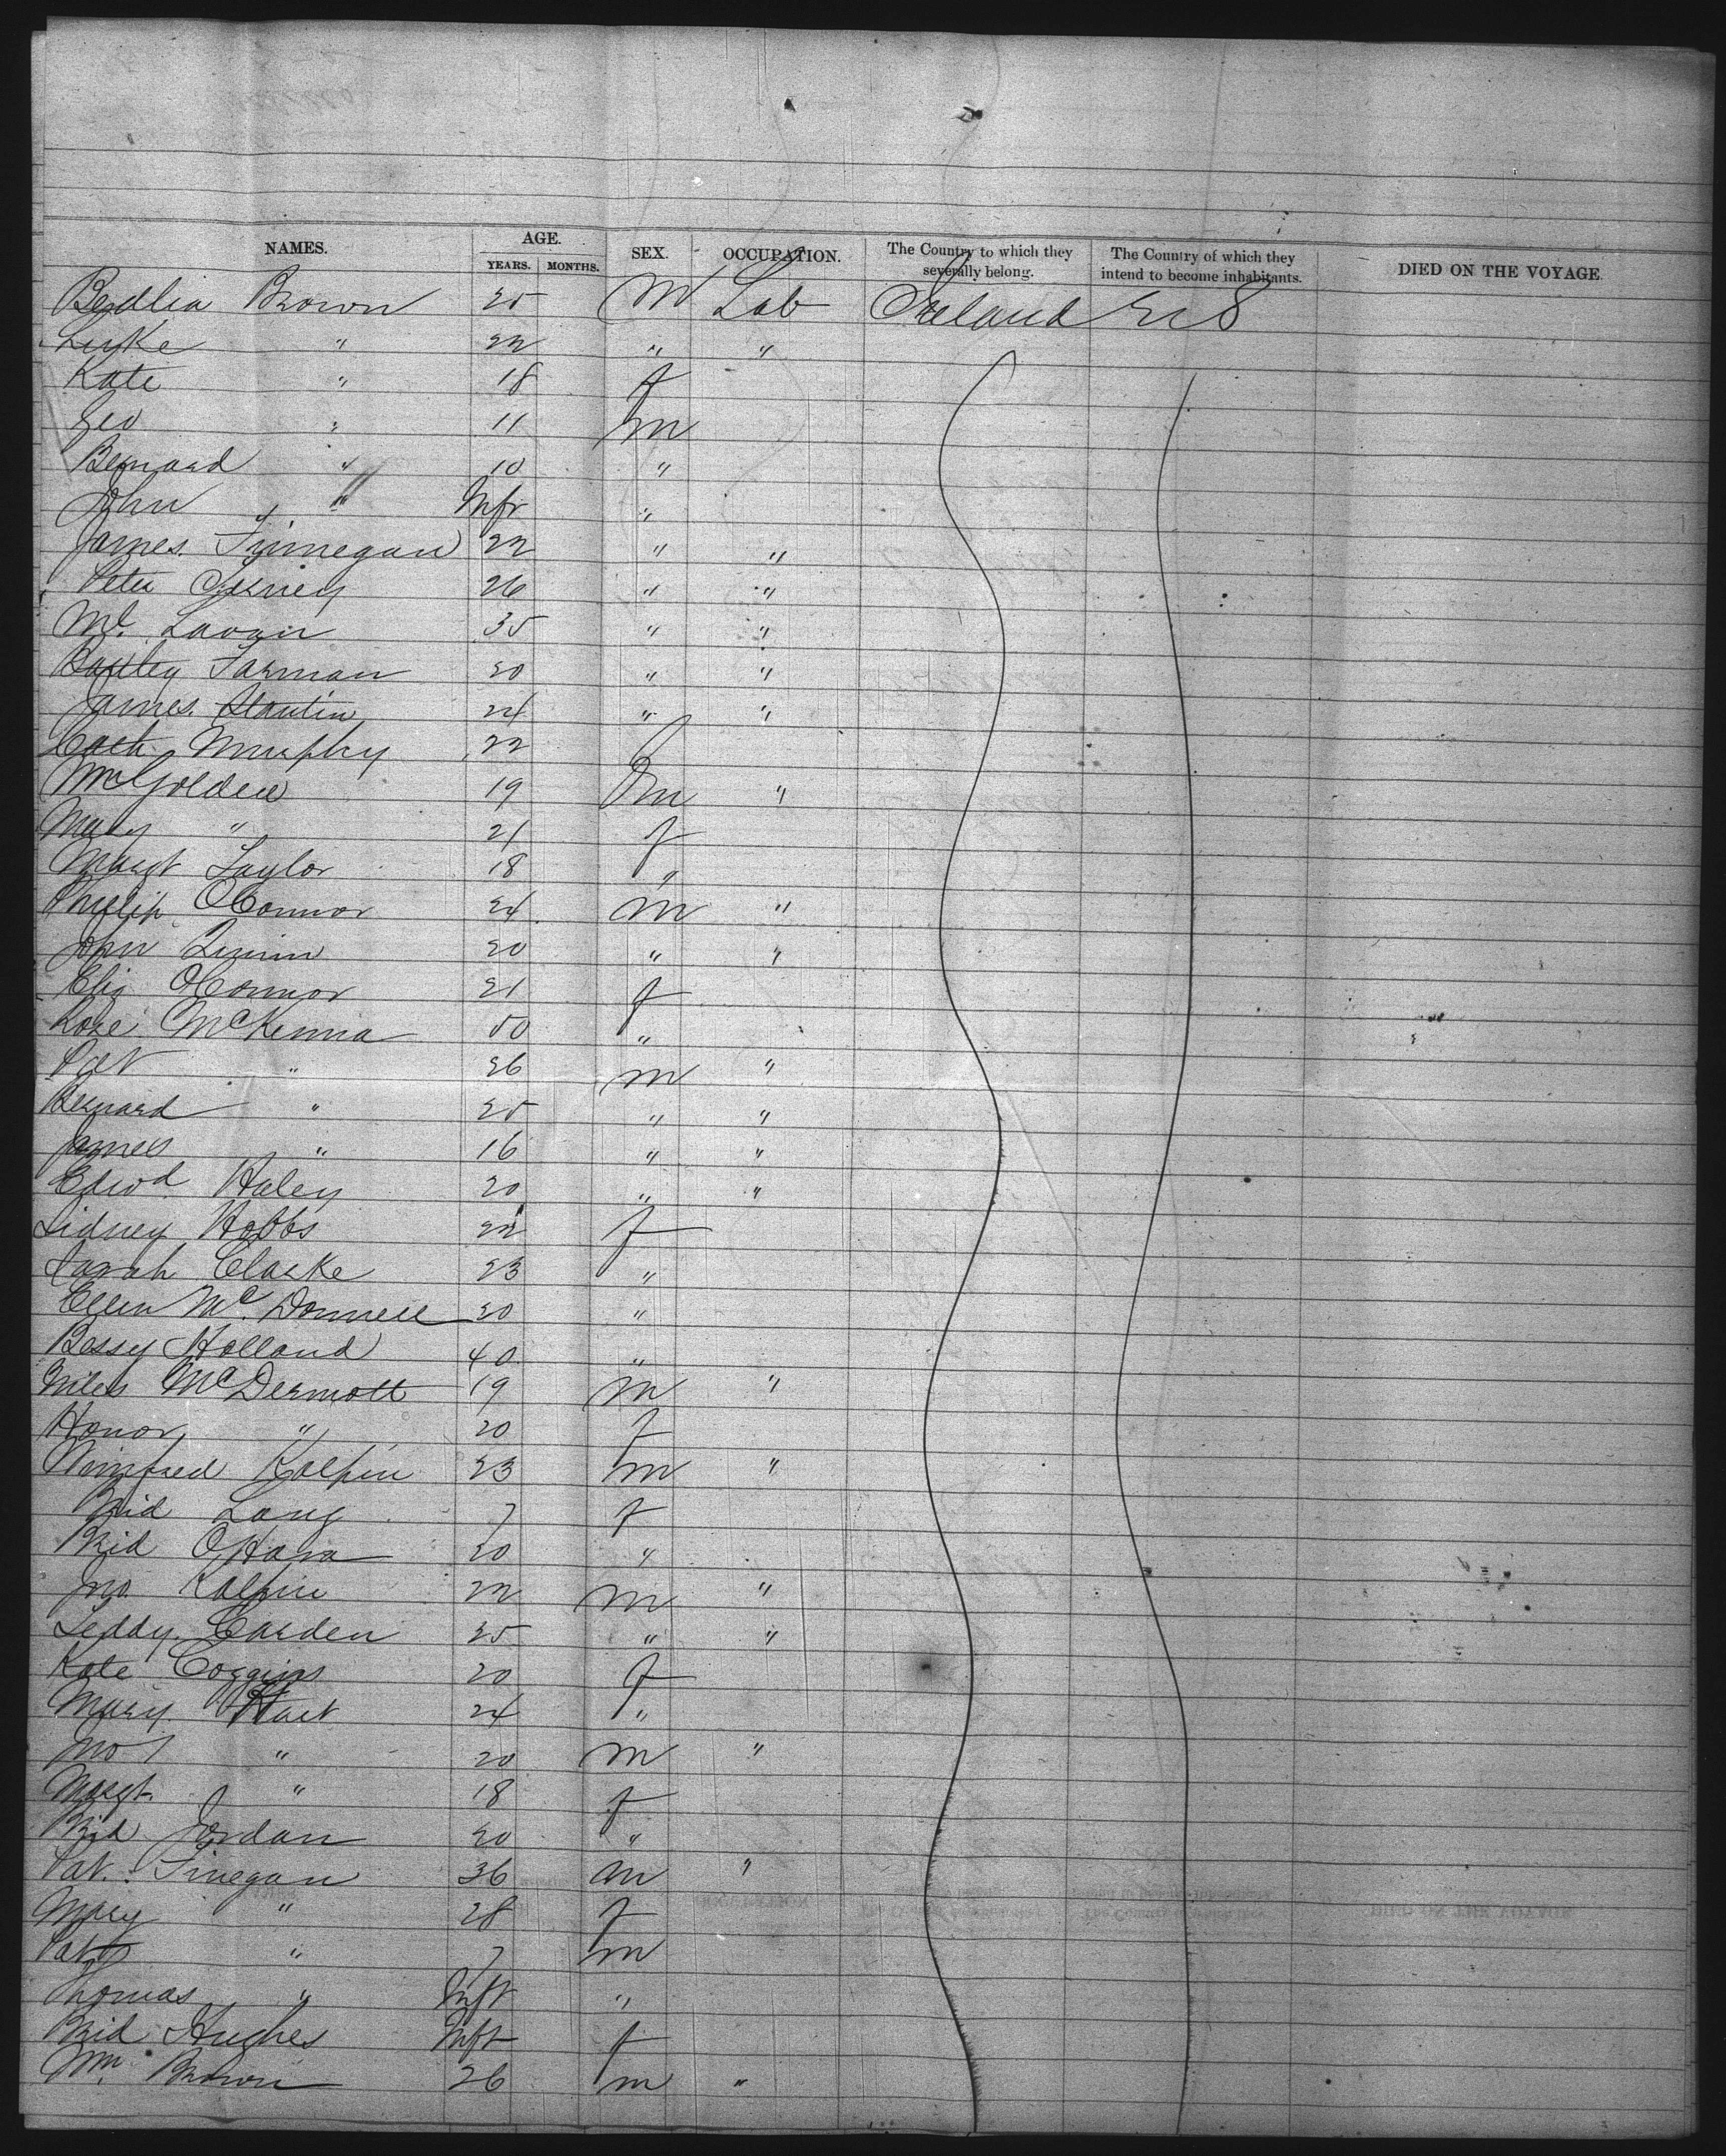 NAMES. AGE. SEX. OCCUPATION. The Country to which they severally belong. The Country of which they intend to become inhabitants. DIED ON THE VOYAGE.
YEARS. MONTHS.
Bedlia Brown 25 M Lab Ireland U S
Luke " 22 " "
Kate " 18 f
Geo " 11 m
Bernard " 10 "
John " Inft "
James Finnegan 22 " "
Peter 26 " "
Ml. Lavan 35 " "
Bartley Farman 20 " "
James Stantin 24 " "
Cath Murphy 22 f
Wm Golden 19 m "
Mary " 21 f
Margt Taylor 18 "
Philip OConnor 24 m "
John Quinn 20 " "
Eliz OConnor 21 f
Rose McKenna 50 "
Pat " 26 m "
Bernard " 25 " "
James " 16 " "
Edwd Haley 20 " "
Sidney Hobbs 22 f
Sarah Clarke 23 "
Ellen Mc. Donnell 20 "
Bessy Holland 40 "
Miles McDermott 19 m "
Honor " 20 f
Winifred Kalpin 23 m "
Brid Lang 7 f
Brid OHara 20 "
Jno. Kalpin 22 m "
Teddy Carden 25 " "
Kate Coggins 20 f
Mary Hart 24 "
Jno " 20 m "
Margt. " 18 f
Brid Jordan 20 "
Pat. Finegan 36 m "
Mary " 28 f
Pat " 7 m
Thomas " Inft "
Brid Hughes Inft f
Wm. Brown 26 m "